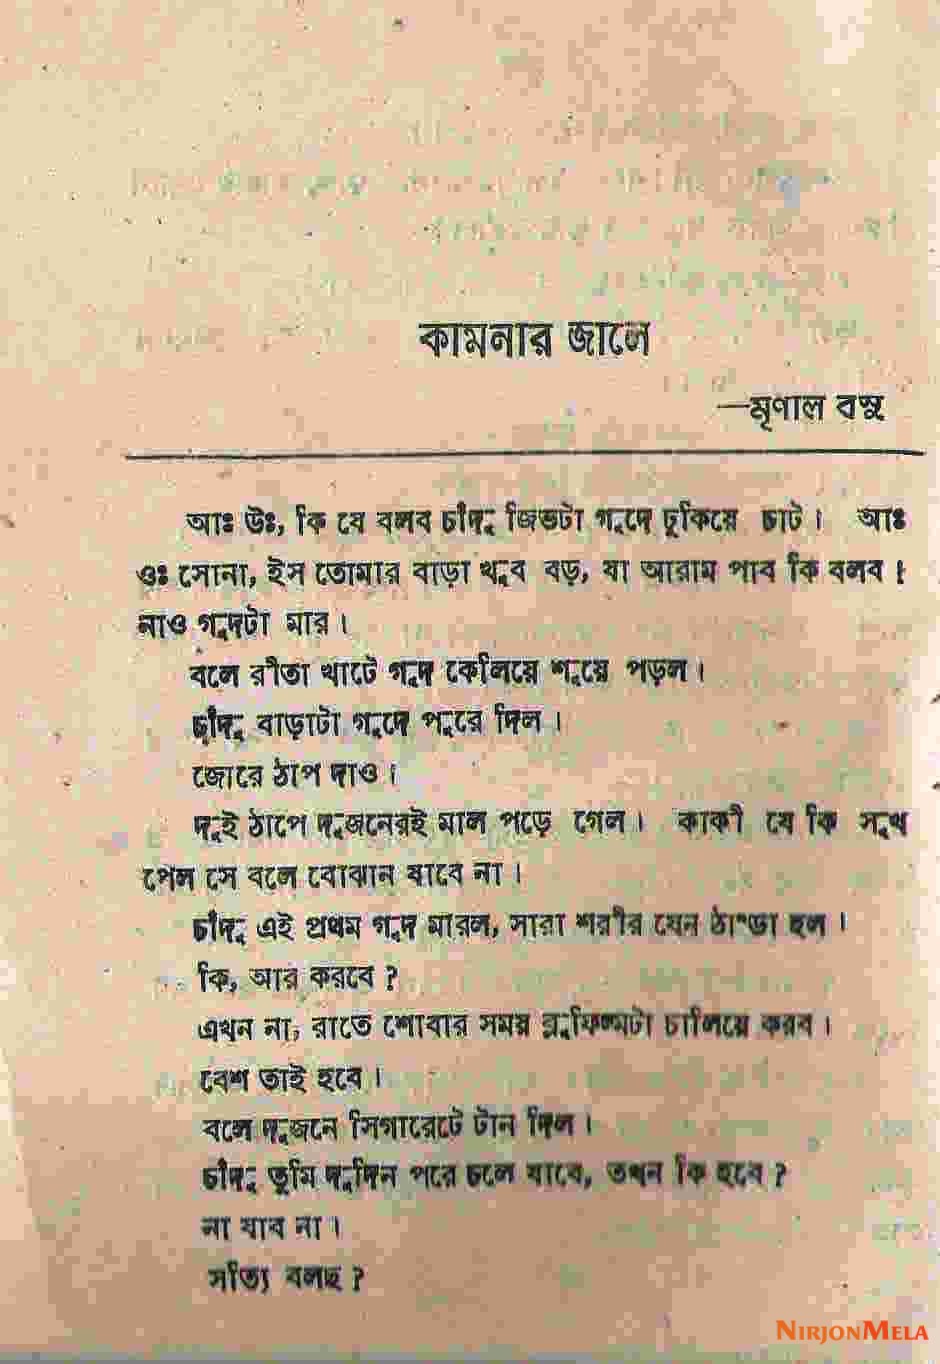 কামনার জালে
—মৃণাল বসু
আঃ উঃ, কি যে বলব চাঁদু জিভটা গুদে ঢুকিয়ে চাট। আঃ
ওঃ সোনা, ইস তোমার বাড়া খুব বড়, যা আরাম পাব কি বলব!
নাও গুদটা মার।
বলে রীতা খাটে গুদ কেলিয়ে শুয়ে পড়ল।
চাঁদু বাড়াটা গুদে পুরে দিল।
জোরে ঠাপ দাও।
দুই ঠাপে দুজনেরই মাল পড়ে গেল। কাকী যে কি সুখ
পেল সে বলে বোঝান যাবে না।
চাঁদু এই প্রথম গুদ মারল, সারা শরীর যেন ঠাণ্ডা হল।
কি, আর করবে?
এখন না, রাতে শোবার সময় ব্লুফিল্মটা চালিয়ে করব।
বেশ তাই হবে।
বলে দুজনে সিগারেটে টান দিল।
চাঁদু তুমি দুদিন পরে চলে যাবে, তখন কি হবে?
না যাব না।
সত্যি বলছ?
NIRJONMELA